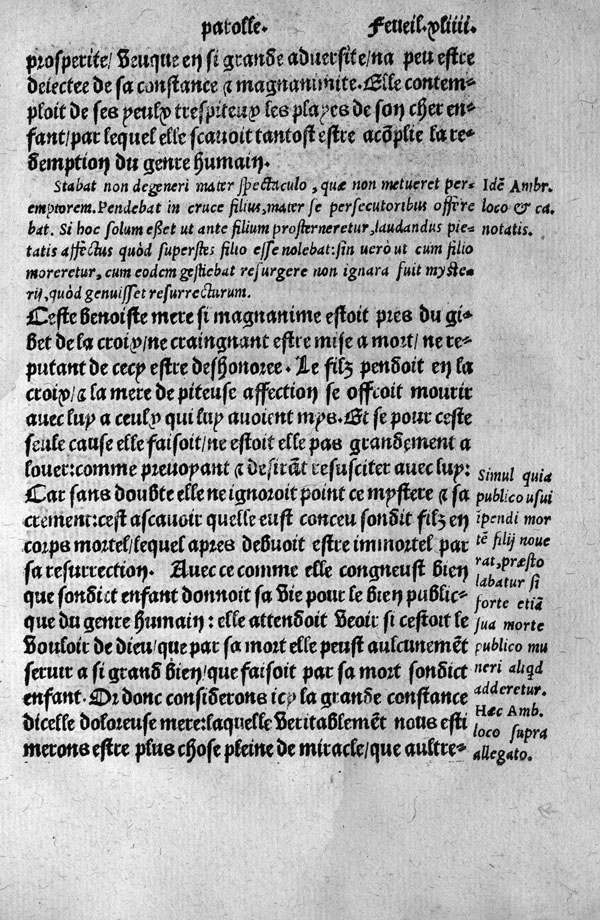 parolle. Feueil.xliiii.
prosperite/ Veuque en si grande aduersite/na peu estre
deiectee de sa constance ⁊ magnanimite. Elle contem-
ploit de ses yeulx trespiteux les playes de son cher en-
fant/par lequel elle scauoit tantost estre acõplie la re-
demption du genre humain.
Stabat non degeneri mater spectaculo, quæ non metueret per-
emptorem. Pendebat in cruce filius, mater se persecutoribus offere
bat. Si hoc solum eßet ut ante filium prosterneretur, laudandus pie-
tatis affectus quòd superstes filio esse nolebat: sin uerò ut cum filio
moreretur, cum eodem gestiebat resurgere non ignara fuit myste-
rij, quòd genuisset resurrecturum.
Idẽ Ambr.
loco & ca.
notatis.
Ceste benoiste mere si magnanime estoit pres du gi-
bet de la croix/ne craingnant estre mise a mort/ ne re-
putant de cecy estre deshonoree. Le filz pendoit en la
croix/⁊ la mere de piteuse affection se offroit mourir
auec luy a ceulx qui luy auoient mys. Et se pour ceste
seule cause elle faisoit/ne estoit elle pas grandement a
louer: comme preuoyant ⁊ desirãt resusciter auec luy:
Car sans doubte elle ne ignoroit point ce mystere ⁊ sa
crement: cest ascauoir quelle eust conceu sondit filz en
corps mortel/lequel apres debuoit estre immortel par
sa resurrection. Auec ce comme elle congneust bien
que sondict enfant donnoit sa Vie pour le bien public-
que du genre humain: elle attendoit Veoir si cestoit le
Vouloir de dieu/que par sa mort elle peust aulcunemẽt
seruir a si grand bien/que faisoit par sa mort sondict
enfant. Or donc considerons icy la grande constance
dicelle doloreuse mere: laquelle Veritablemẽt nous esti
merons estre plus chose pleine de miracle/que aultre-
Simul quia
publico usui
ĩpendi mor
tẽ filij noue
rat, præsto
labatur si
forte etiã
sua morte
publico mu
neri aliqd
adderetur.
Hæc Amb.
loco supra
allegato.